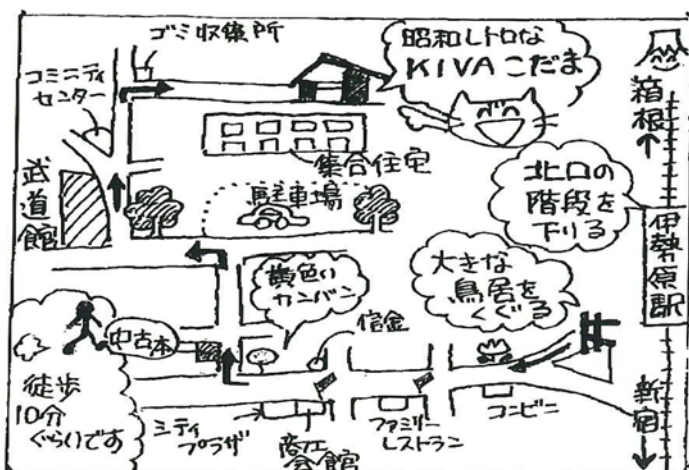 ゴミ収集所
コミニティ
センター
昭和レトロな
KIVAこだま
箱根
集合住宅
武道館
駐車場
北口の
階段を
下りる
伊勢原駅
黄色い
カンバン
大きな
鳥居を
くぐる
信金
中古本
徒歩
10分
ぐらいです
シティ
プラザ
商工
会館
ファミリー
レストラン
コンビニ
新宿